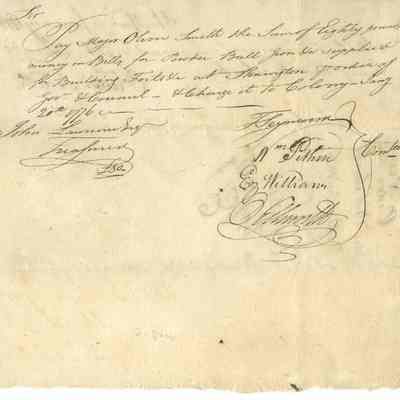 Sir
Pay Major Oliver Smith the Sum of Eighty pounds
money in Bills for Powder Ball Iron &c supplied
for Building Forts &c at Stonington p order of
Govr & Council – & Charge it to Colony – Jany
20th 1776
John Lawrence Esqr
Treasurer
£80
T Seymour
Wm Pitkin
Ez Williams
O Ellsworth
Comtee